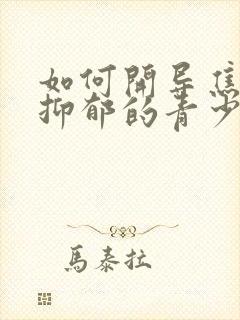 如何開导焦
抑郁的青少
馬泰拉